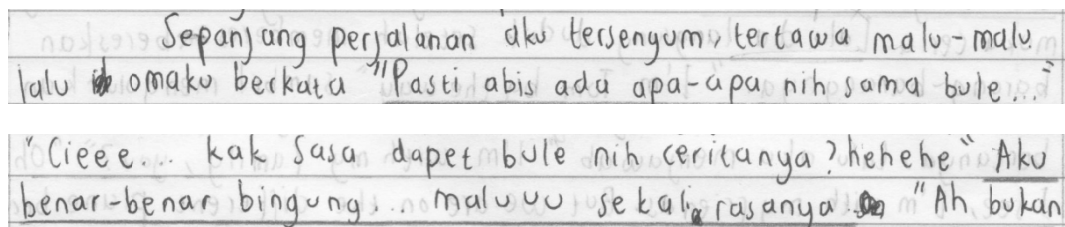 Sepanjang perjalanan aku tersenyum, tertawa malu-malu
lalu omaku berkata "Pasti abis ada apa-apa nih sama bule..."
"Cieee... kak Sasa dapet bule nih ceritanya? hehehe" Aku
benar-benar bingung... maluuu sekali rasanya. "Ah bukan